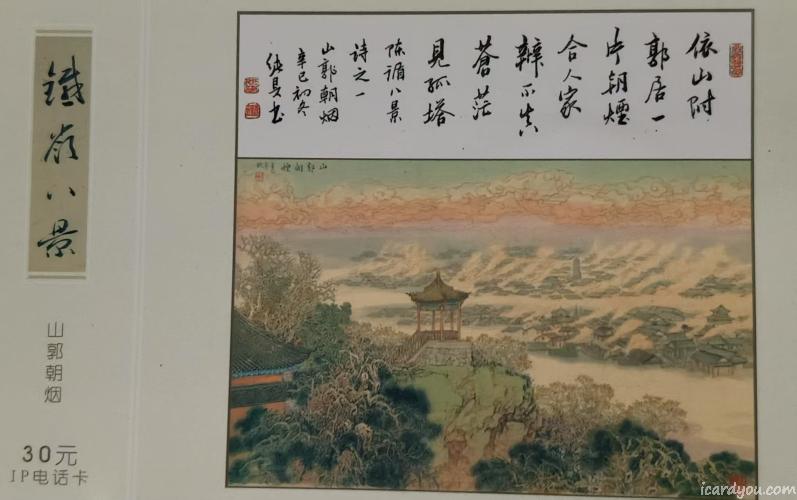 鐵嶺八景
山郭朝烟
30元
IP电话卡
依山附
郭居一
片朝煙
合人家
辨不真
蒼茫
見孤塔
陈循八景
诗之一
山郭朝烟
辛巳初冬
书
山郭朝煙
icardyou.com